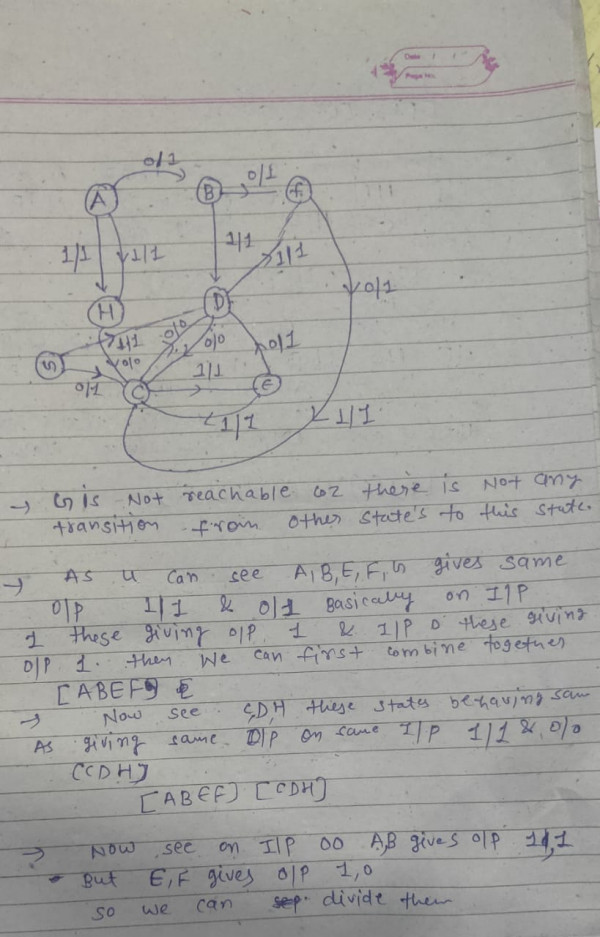 Date / /
Page No.
0/1
A
B
0/1
f
1/1
1/1
1/1
1/1
0/1
H
D
0/0
1/1
0/0
0/0
0/1
G
0/1
C
1/1
E
1/1
1/1
→ G is Not reachable coz there is Not any
transition from other state's to this state.
→ As u can see A,B,E,F,G gives same
O/P 1/1 & 0/1 Basically on I/P
1 these giving O/P 1 & I/P 0 these giving
O/P 1. then We can first combine together
[ABEF]
→ Now see C,D,H these states behaving sam
As giving same O/P on same I/P 1/1 & 0/0
[CDH]
[ABEF] [CDH]
→ Now see on I/P 00 A,B gives O/P 1,1
- But E,F gives O/P 1,0
so we can divide them